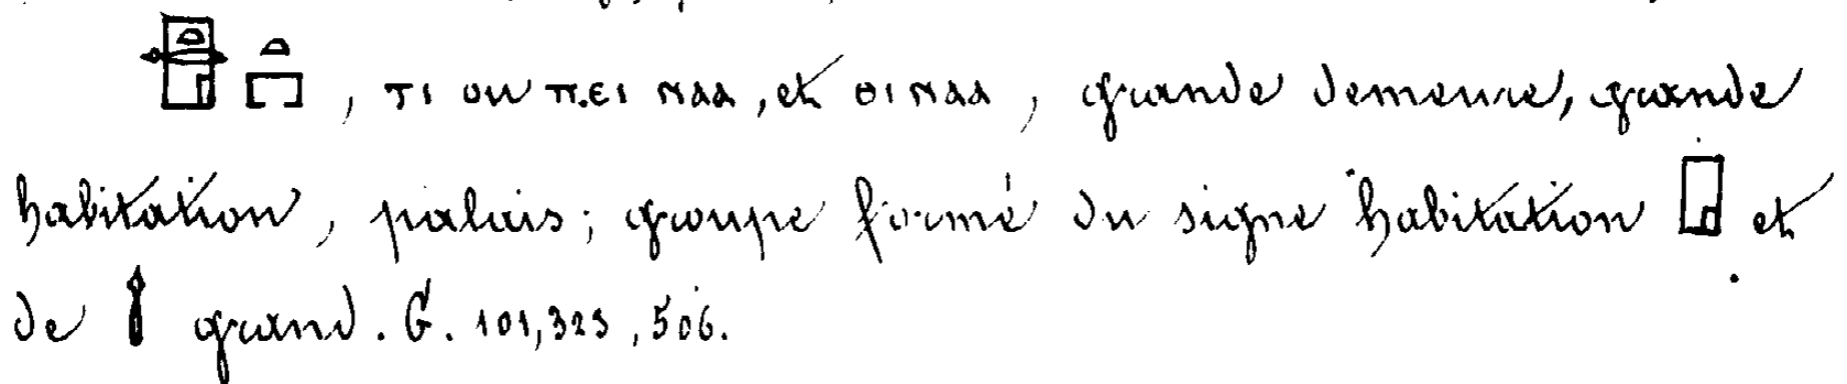 𓉗𓏏𓉐, ⲧⲓ ou ⲡ.ⲉⲓ ⲛⲁⲁ, et ⲑⲓ ⲛⲁⲁ, grande demeure, grande
habitation, palais; groupe formé du signe habitation 𓉗 et
de 𓉻 grand. G. 101, 323, 506.